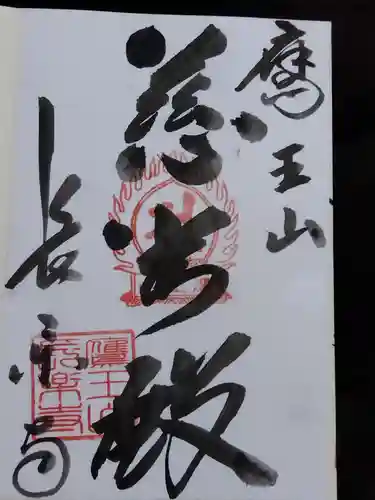 鷹王山
慈殿
長楽寺
鷹王山
長樂寺